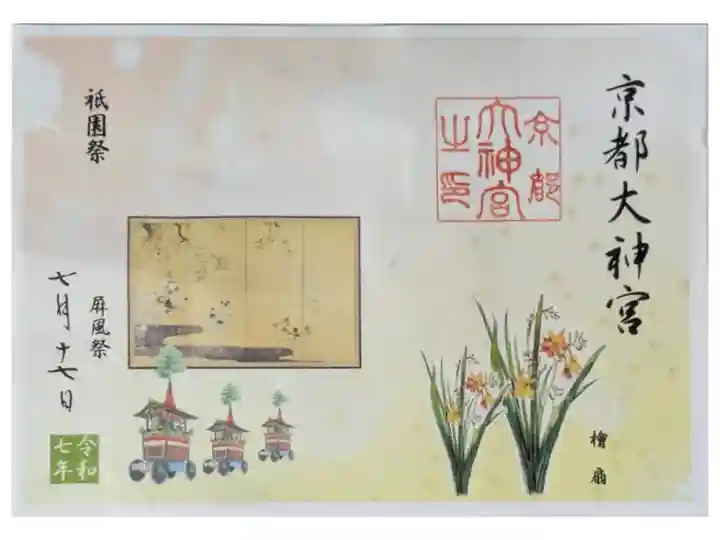 京都大神宮
京都
大神宮
之印
檜扇
祇園祭
屏風祭
七月十七日
令和
七年